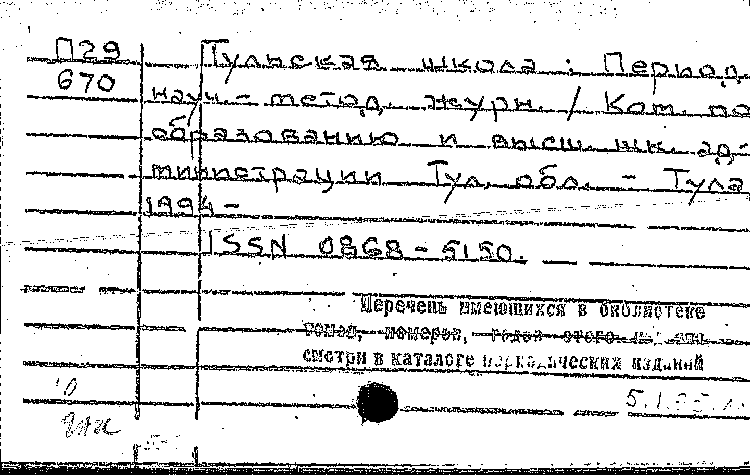 П29 Тульская школа : Период.
670 науч.- метод. журн. / Ком. по
образованию и высш. шк. ад-
министрации Тул. обл. - Тула
1994 -
ISSN 0868-5150.
Перечень имеющихся в библиотеке
томов, номеров, годов этого
смотри в каталоге периодических изданий
10